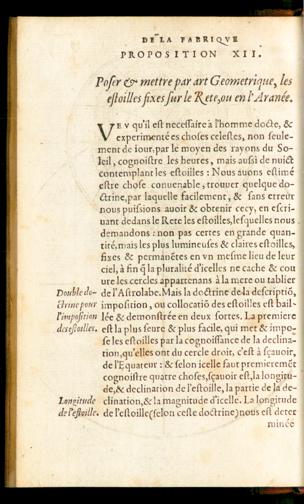 DE LA FABRIQVE
PROPOSITION XII.
Poser & mettre par art Geometrique, les
estoilles fixes sur le Rete, ou en l'Aranée.
VEV qu'il est necessaire à l'homme docte, &
experimenté es choses celestes, non seule-
ment de iour, par le moyen des rayons du So-
leil, cognoistre les heures, mais aussi de nuict
contemplant les estoilles : Nous auons estimé
estre chose conuenable, trouuer quelque do-
ctrine, par laquelle facilement, & sans erreur
nous puissions auoir & obtenir cecy, en escri-
uant dedans le Rete les estoilles, lesquelles nous
demandons : non pas certes en grande quan-
tité, mais les plus lumineuses & claires estoilles,
fixes & permanẽtes en vn mesme lieu de leur
ciel, à fin q̃ la pluralité d'icelles ne cache & cou
ure les cercles appartenans à la mere ou tablier
de l'Astrolabe. Mais la doctrine de la descriptiõ,
imposition, ou collocatiõ des estoilles est bail-
lée & demonstrée en deux sortes. La premiere
est la plus seure & plus facile, qui met & impo-
se les estoilles par la cognoissance de la declina-
tion, qu'elles ont du cercle droit, c'est à sçauoir,
de l'Equateur : & selon icelle faut premieremẽt
cognoistre quatre choses, sçauoit est, la longitu-
de, & declination de l'estoille, la partie de la de-
clination, & la magnitude d'icelle. La longitude
de l'estoille (selon ceste doctrine) nous est deter
minée
Double do-
ctrine pour
l'imposition
des estoilles.
Longitude
de l'estoille.